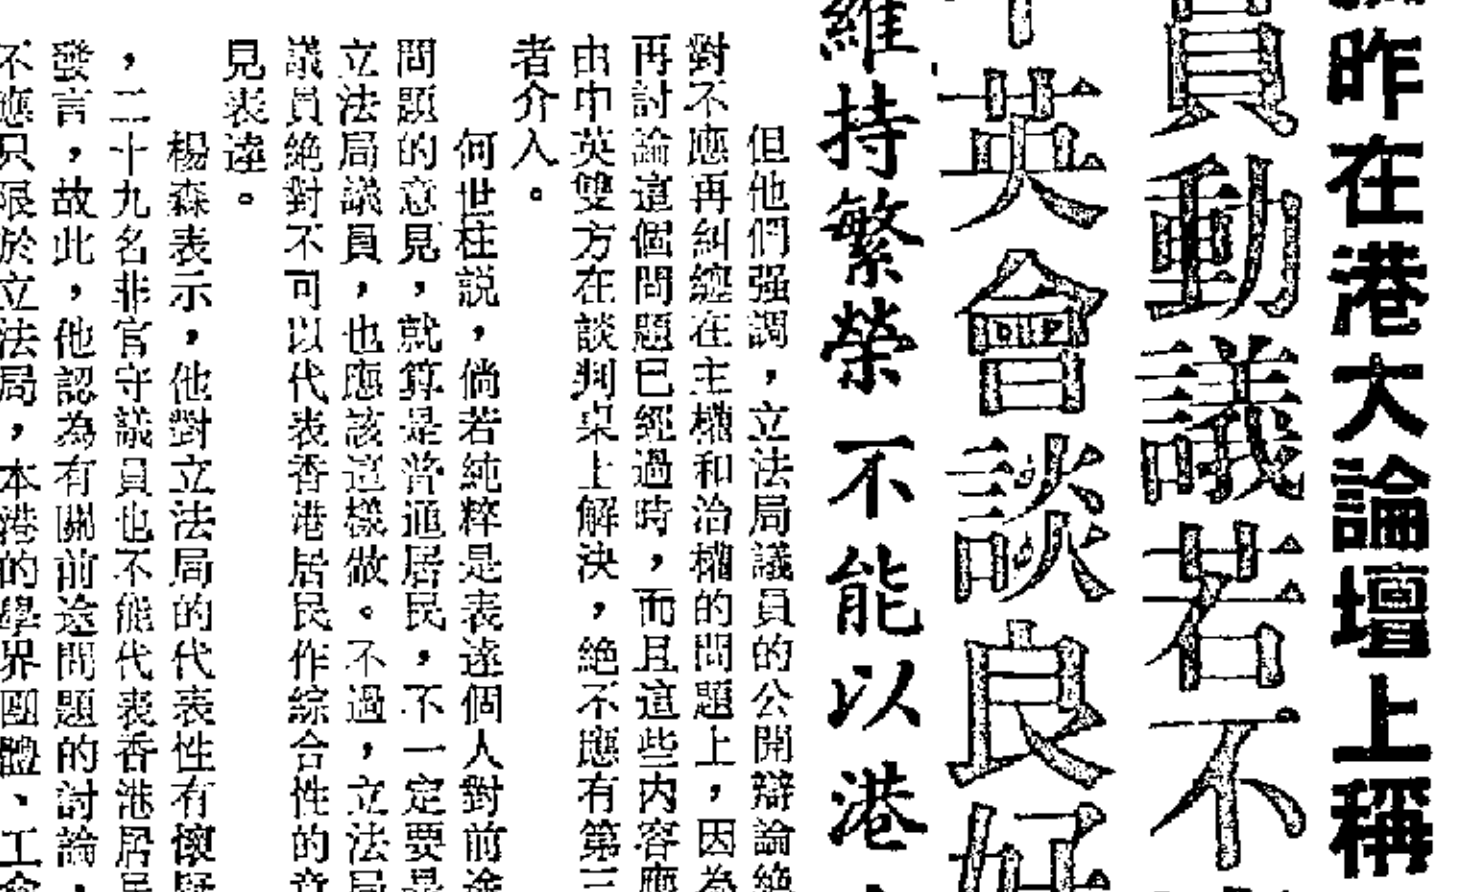 昨在港大論壇上稱
員動議若不
英會談良好
維持繁榮不能以港
但他們强調，立法局議員的公開辯論絕
對不應再糾纏在主權和治權的問題上，因為
再討論這個問題已經過時，而且這些內容應
由中英雙方在談判桌上解決，絕不應有第三
者介入。
何世柱説，倘若純粹是表達個人對前途
問題的意見，就算是普通居民，不一定要是
立法局議員，也應該這樣做。不過，立法局
議員絕對不可以代表香港居民作綜合性的意
見表達。
楊森表示，他對立法局的代表性有懷疑
，二十九名非官守議員也不能代表香港居民
發言，故此，他認為有關前途問題的討論，
不應只限於立法局，本港的學界團體、工會